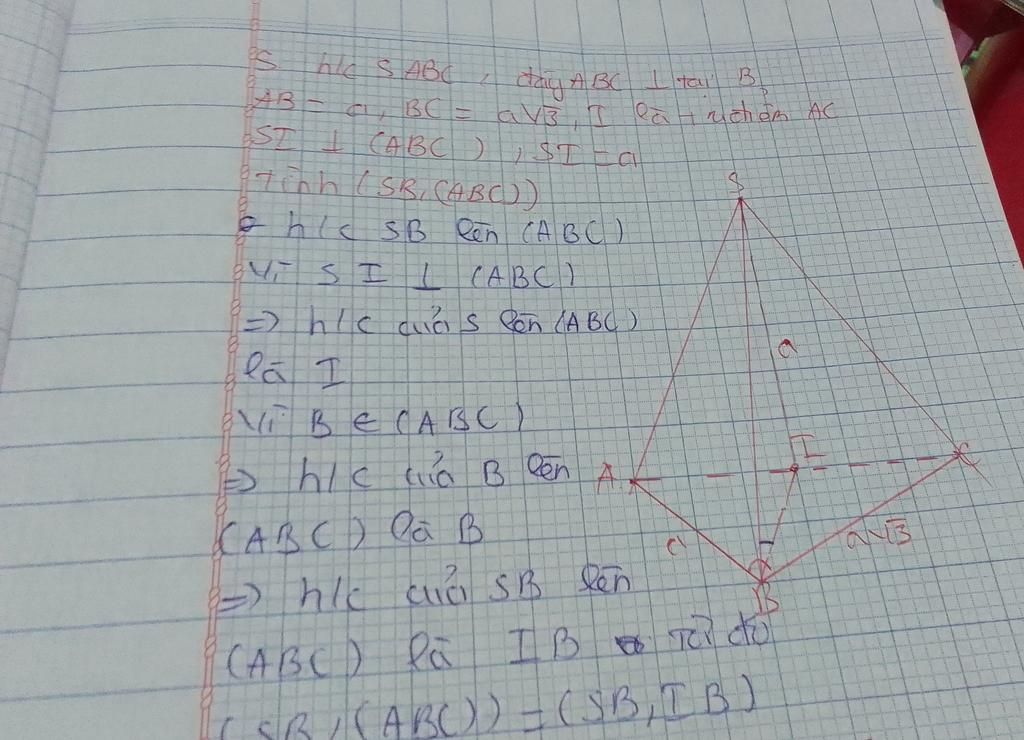 S h/c S ABC, đáy ABC ⊥ tại B,
AB = a, BC = a√3, I là AC
SI ⊥ (ABC), SI = a
Tính (SB, (ABC))
h/c SB lên (ABC)
Vì S I ⊥ (ABC)
=> h/c của S lên (ABC)
là I
Vì B ∈ (ABC)
=> h/c của B lên
(ABC) là B
=> h/c của SB lên
(ABC) là IB Từ đó
(SB, (ABC)) = (SB, IB)
S
a
I
A
C
a
a√3
B